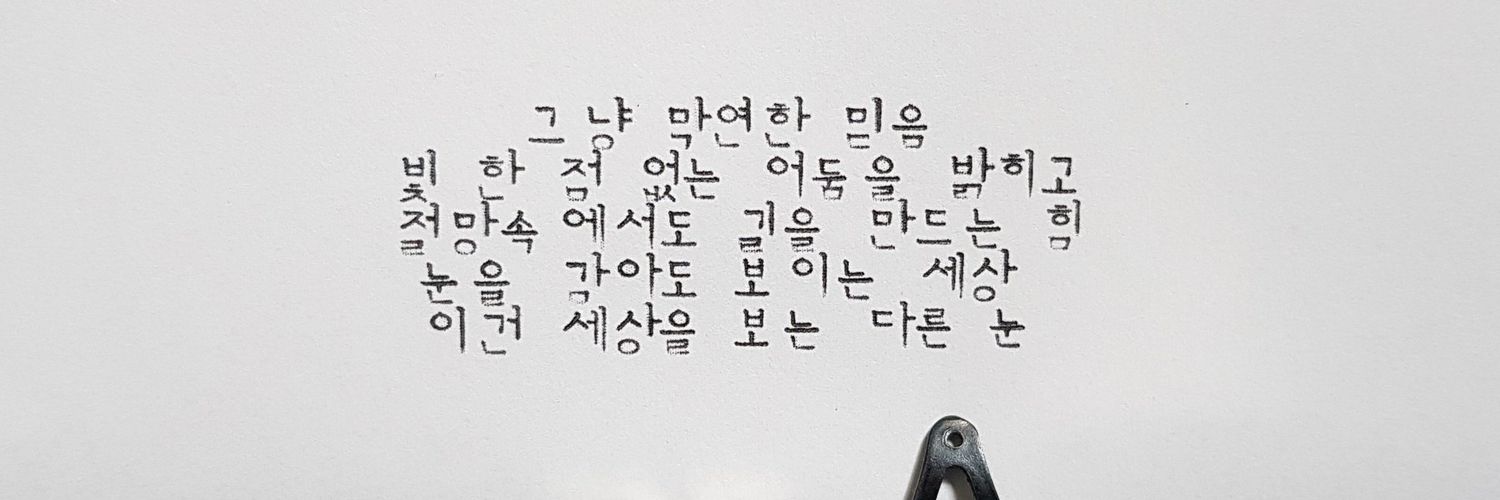 그냥 막연한 믿음
빛 한 점 없는 어둠을 밝히고
절망속에서도 길을 만드는 힘
눈을 감아도 보이는 세상
이건 세상을 보는 다른 눈